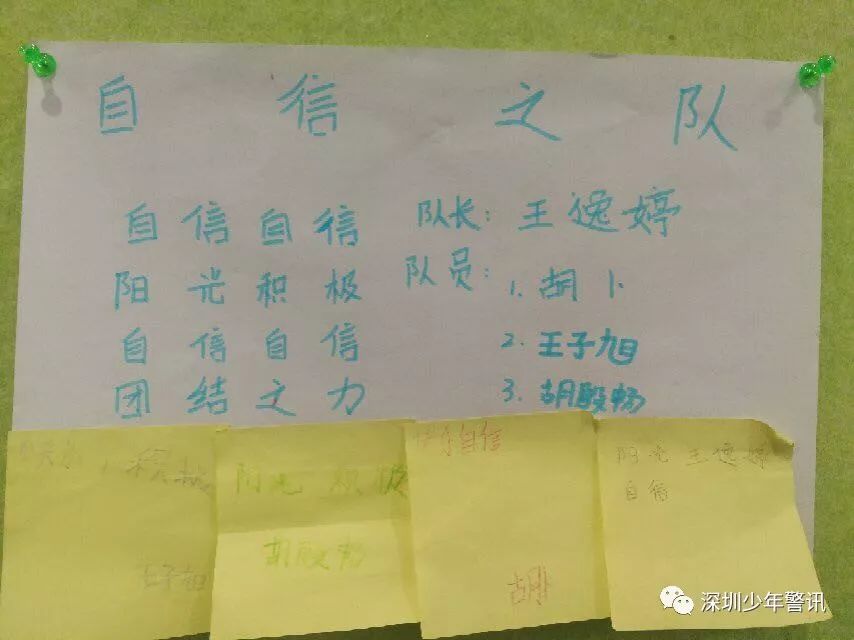 自信之队
自信自信
阳光积极
自信自信
团结之力
队长：王逸婷
队员：1.胡卜
2.王子旭
3.胡殷畅
积极
王子旭
阳光 积极
胡殷畅
自信
胡卜
阳光 王逸婷
自信
深圳少年警讯